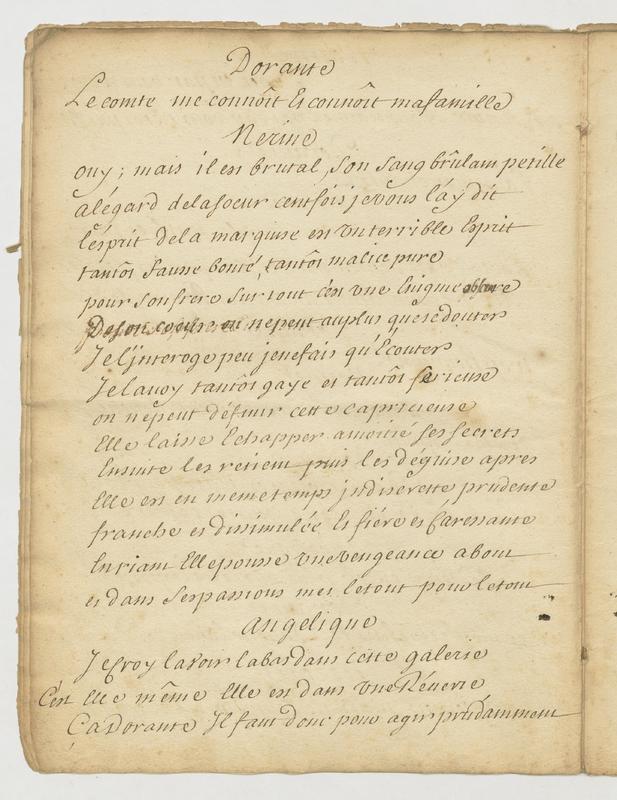 Dorante
Le comte me connoît Et connoît ma famille
Nerine
ouy ; mais il est brutal, son sang brûlant petille
alégard dela soeur cent fois je vous láy dit
L'esprit dela marquise est vn terrible Esprit
tantôt fausse bonté, tantôt malice pure
pour son frere sur tout c'est vne Enigme obscure
De son coeur on ne peut au plus que se douter
Je l'jnteroge peu je ne fais qu'Ecouter
Je la voy tantôt gaye et tantôt serieuse
on ne peut définir cette capricieuse
Elle laisse Echapper amoitié ses secrets
Ensuite les retient puis les déguise apres
Elle est en meme temps jndiscrette prudente
franche et dissimulée Et fiére et Caressante
En riant Elle pousse vne vengeance about
et dans ses passions met le tout pour le tout
angélique
Je Croy la voir labas dans cette galerie
C'est Elle même Elle est dans vne Réverie
Ca Dorante Il faut donc pour agir prudamment